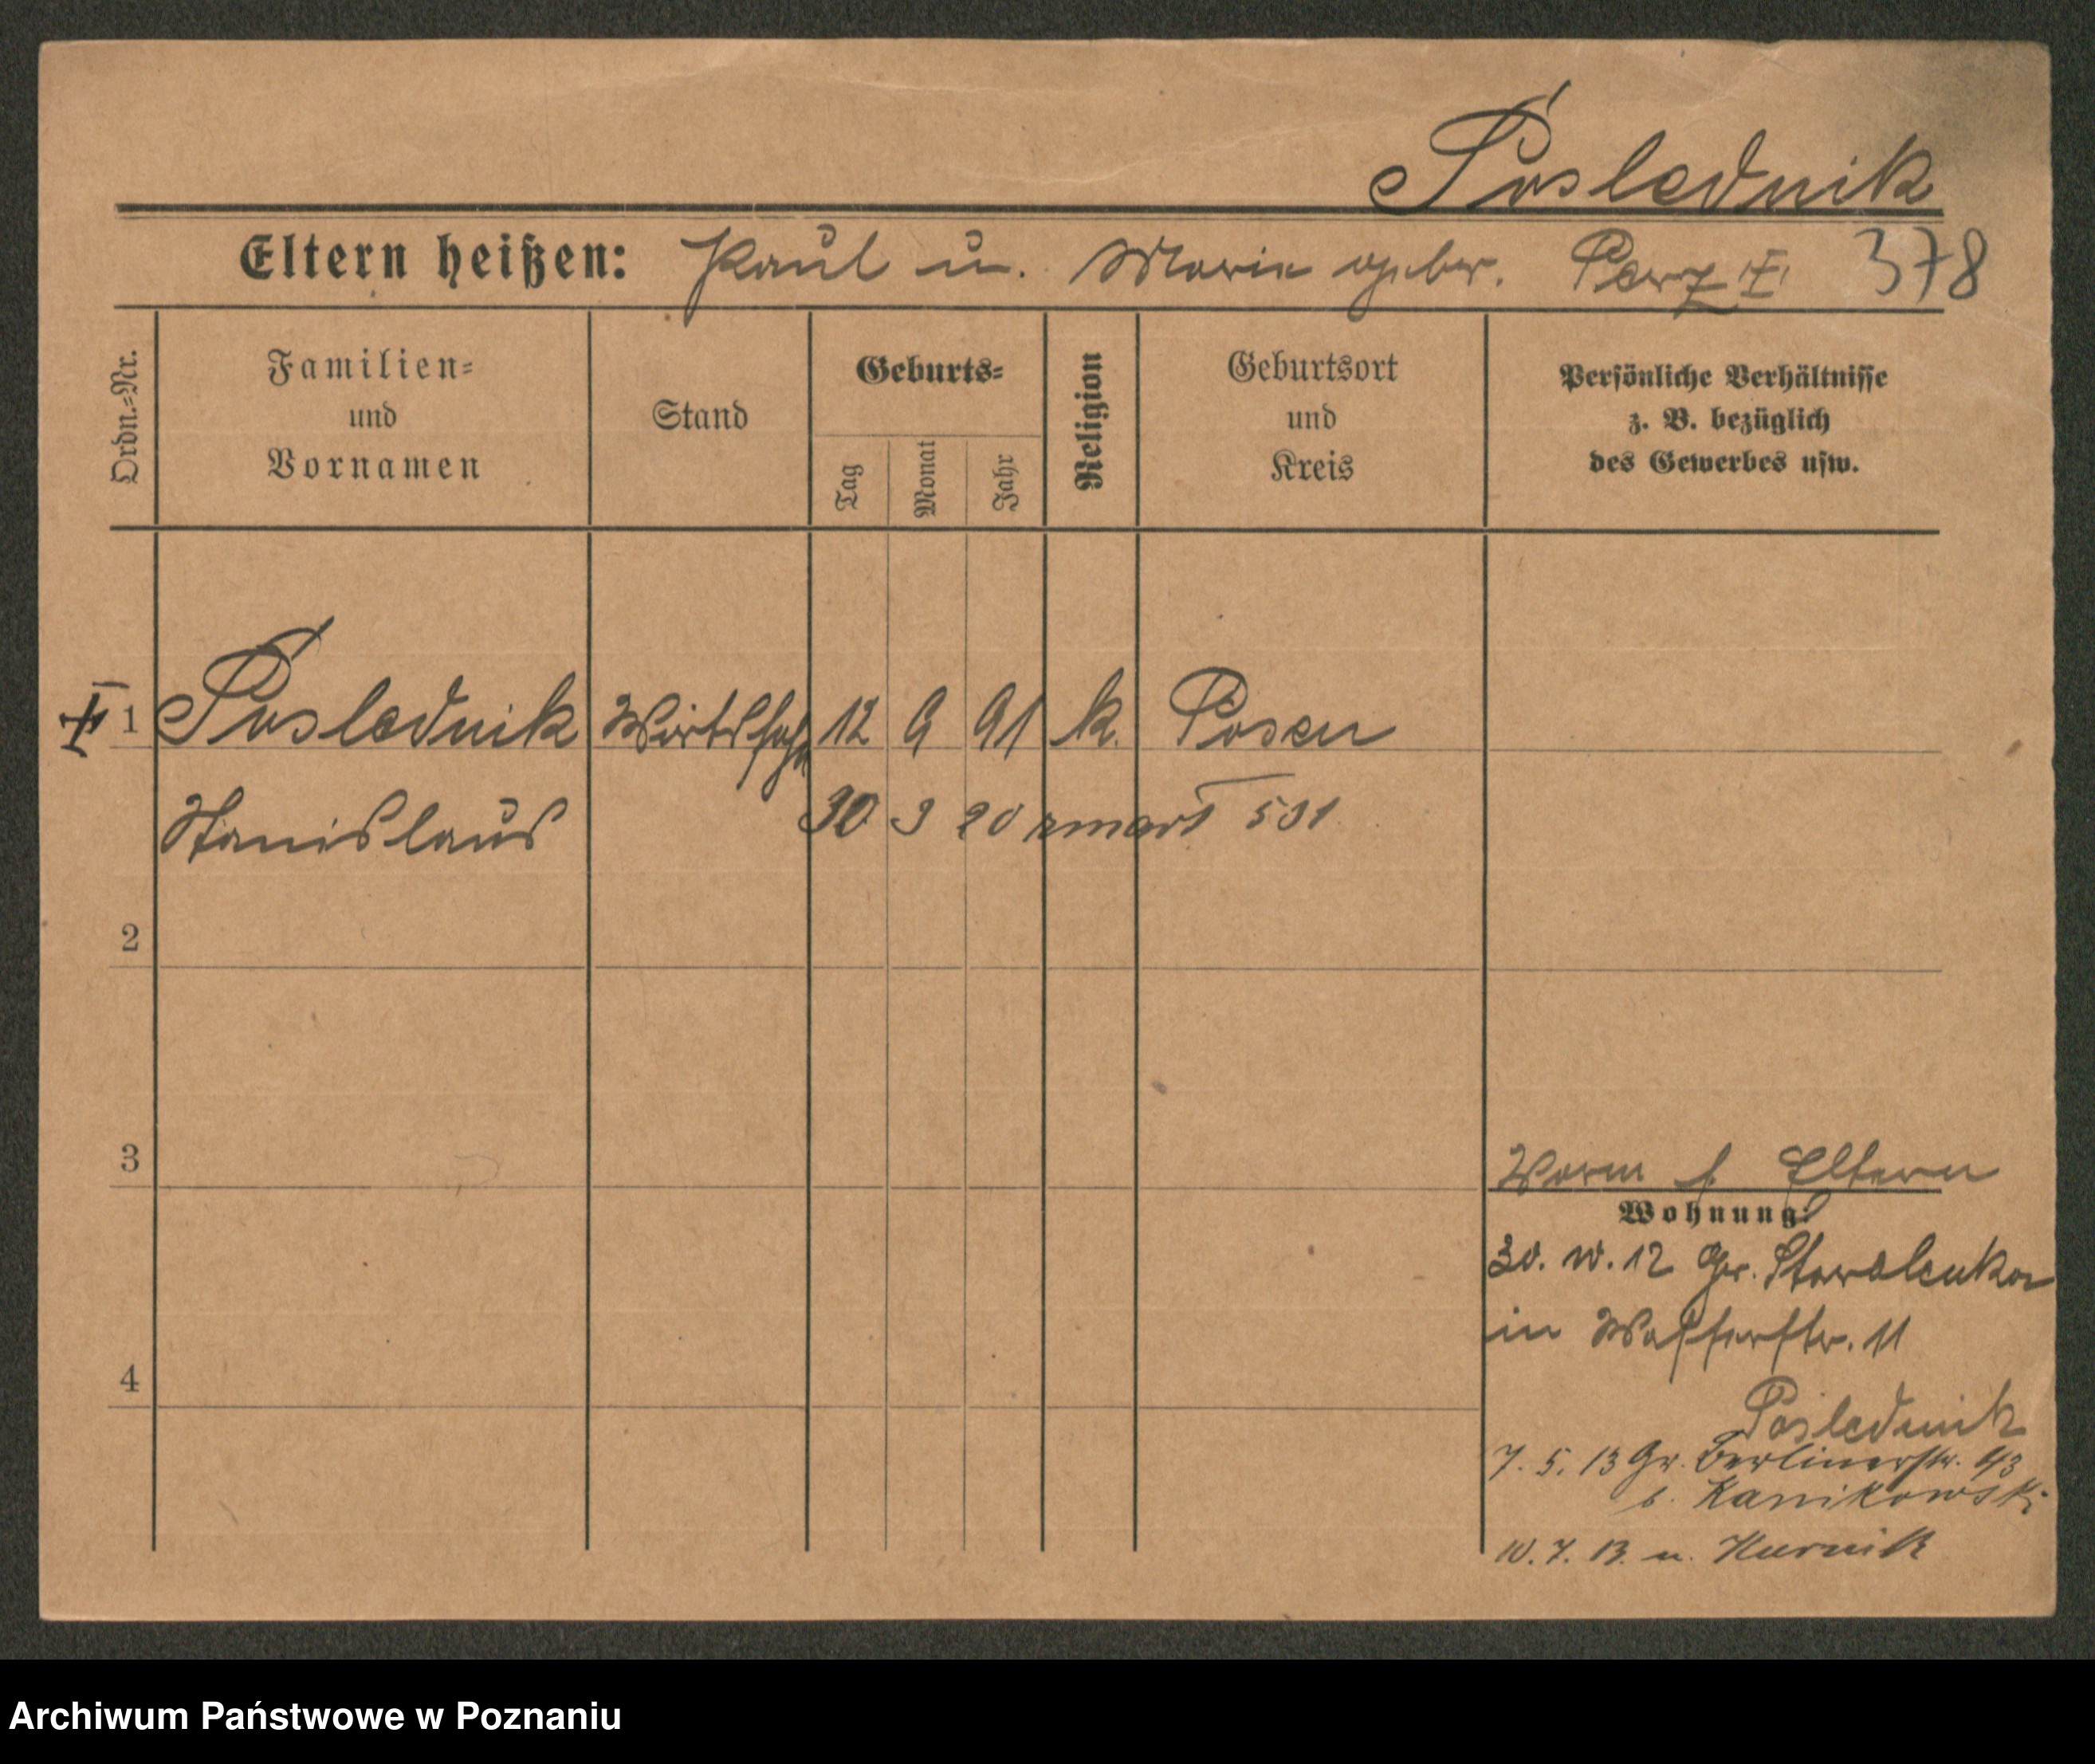 Poslednik
Eltern heißen: Paul u. Marie geber. Perz 378
Ordn.=Nr.
Familien=
und
Vornamen
Stand
Geburts=
Tag
Monat
Jahr
Religion
Geburtsort
und
Kreis
Persönliche Verhältnisse
z. B. bezüglich
des Gewerbes usw.
1 Poslednik Wirtssohn 12 9 91 k. Posen
Stanislaus 30 3 20 zmarł 531
2
3
4
Worm b. Eltern
Wohnung:
in Wasserstr. 11
Poslednik
7. 5. 13 Gr. Berlinerstr. 93
b. Kanikowski
10. 7. 13. n. Kurnik
Archiwum Państwowe w Poznaniu